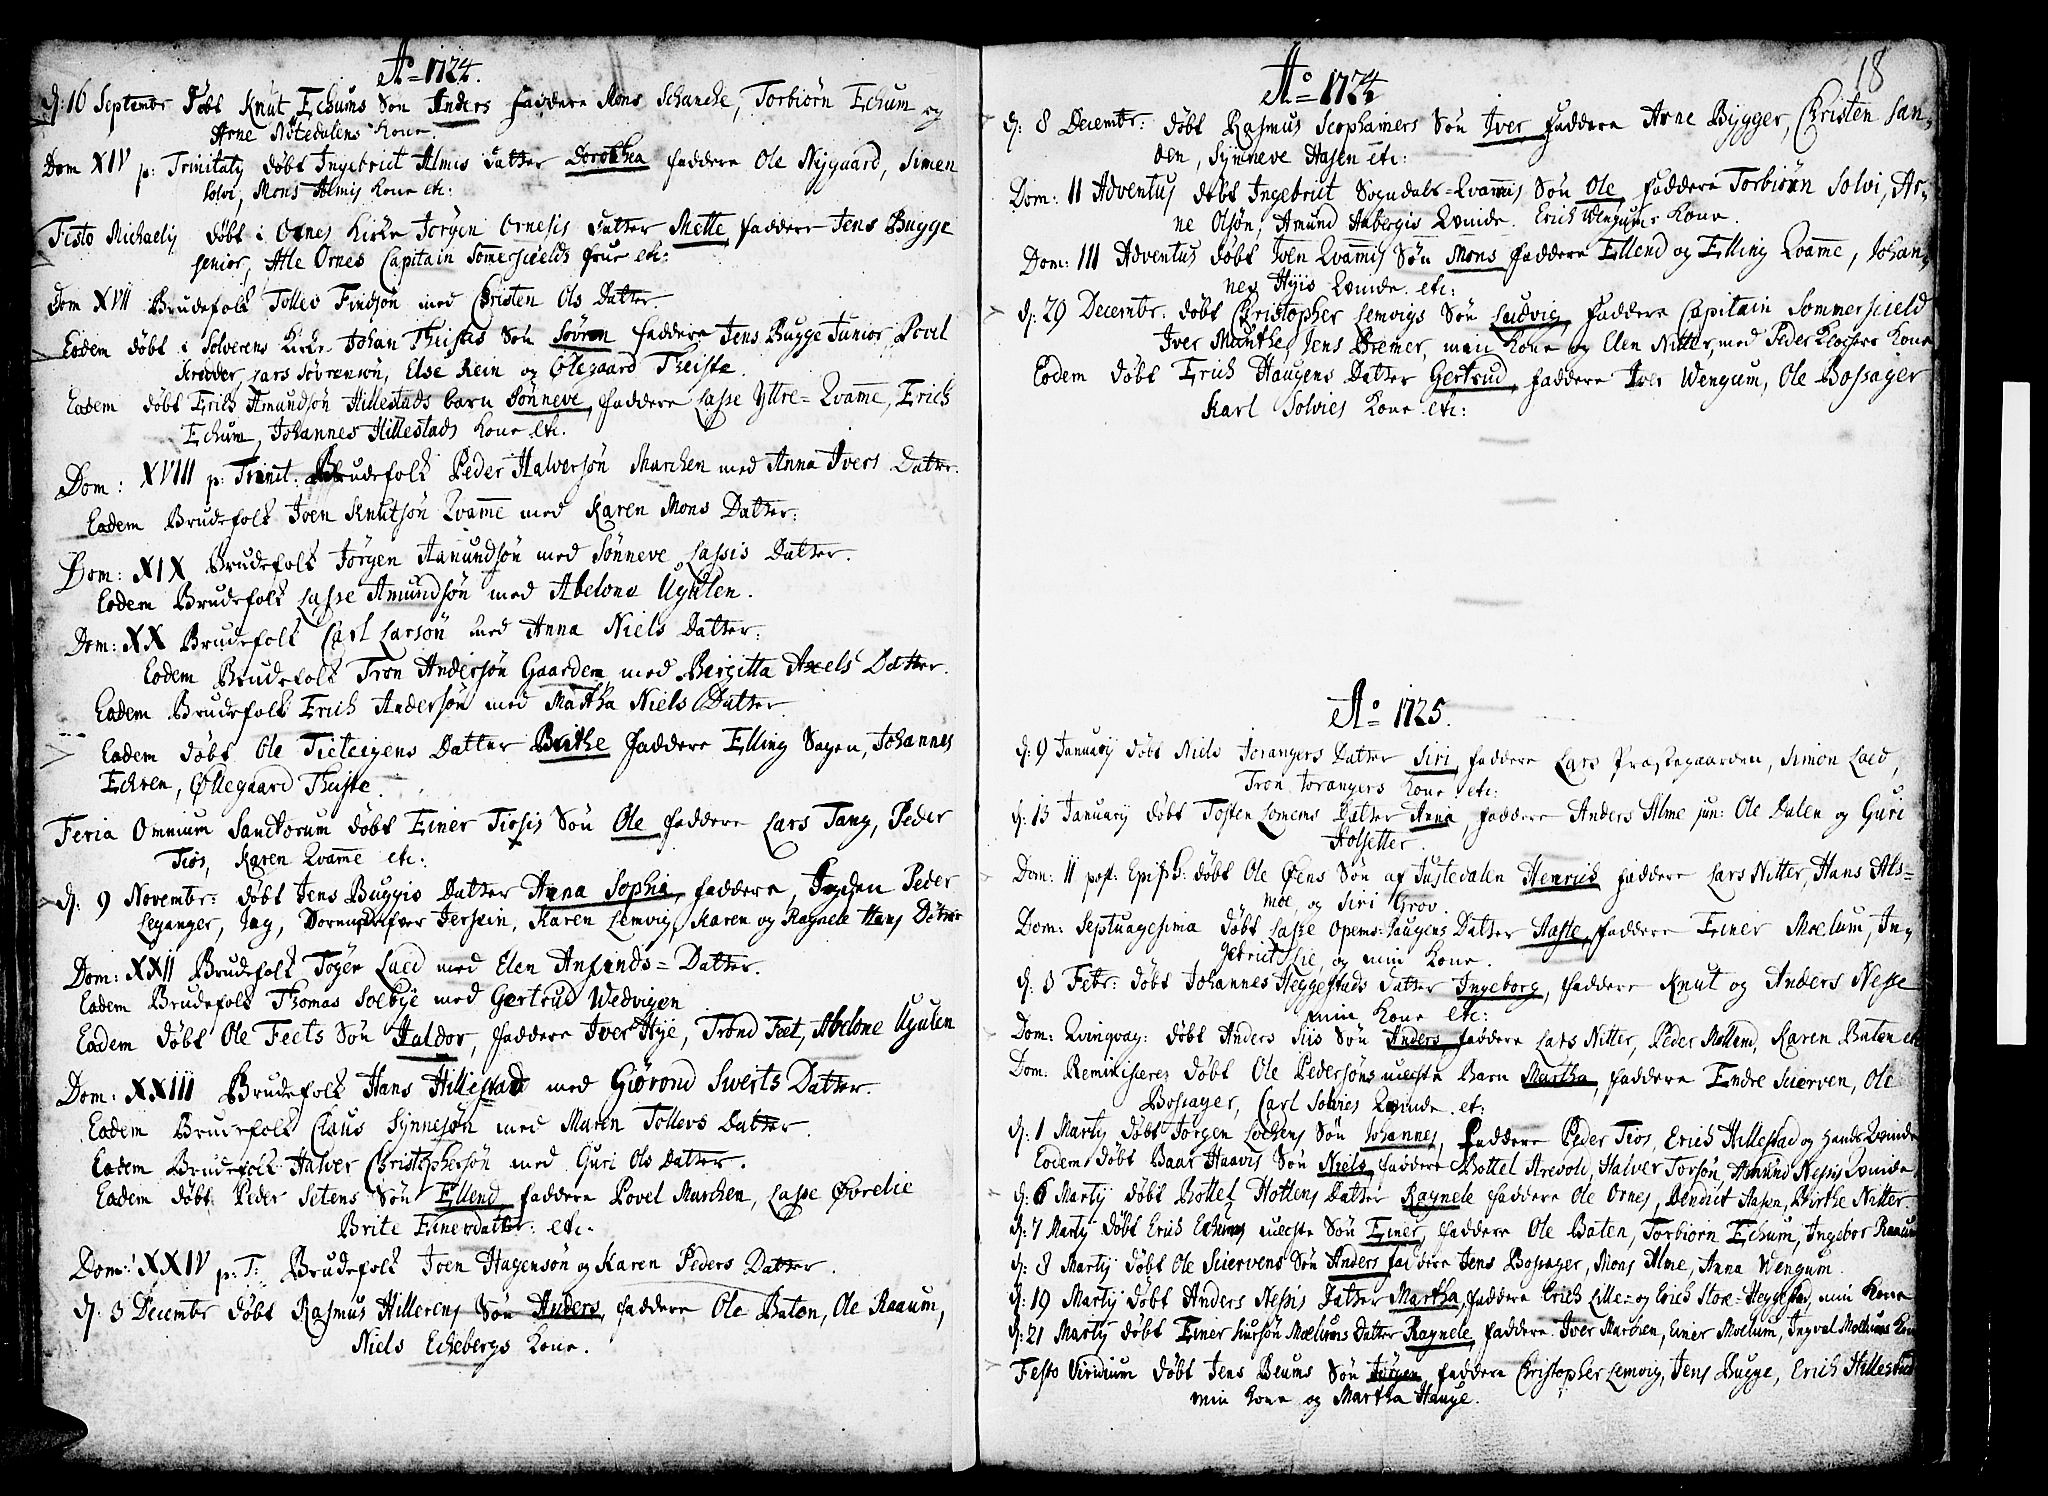 Ao 1724.
d: 16 Septembr døbt Knut Echums Søn Anders faddere Mons Schanche, Torbiørn Echum og
Arne Nötedalens Kone.
Dom XIV p: Trinitatis døbt Ingebrict Almis datter Dorothea faddere Ole Nygaard, Simen
Solvi, Mons Almis Kone etc:
Festo Michaelis døbt i Ornes Kirke Jørgen Ornesis datter Mette faddere Jens Bugge
senior, Atle Ornes Capitain Somerscields frue etc:
Dom XVII Brudefolk Tollev Findsøn med Christen Ols Datter
Eodem døbt i Solverens Kirke Johan Theistes Søn Søvren faddere Jens Bugge Junior, Povel
Kredder, Lars Sövrensøn, Else Rein og Ølegaard Theiste.
Eodem døbt Erich Amundsøn Hillestads barn Sönneve, faddere Lasse Yttre-Qvame, Erich
Echum, Johannes Hillestads Kone etc.
Dom: XVIII p: Trinit: Brudefolk Peder Halversøn Marchen med Anna Ivers Datter.
Eodem Brudefolk Joen Knutsøn Qvame med Karen Mons Datter.
Dom: XIX Brudefolk Jörgen Aamundsøn med Sönneve Lassis Datter.
Eodem Brudefolk Lasse Amundsøn med Abelone Ugulen.
Dom: XX Brudefolk Carl Larsøn med Anna Niels Datter.
Eodem Brudefolk Tron Andersøn Gaardem med Birgitta Axels Datter.
Eodem Brudefolk Erich Andersøn med Martha Niels Datter.
Eodem døbt Ole Tieteigens Datter Brithe faddere Elling Sagen, Johannes
Echren, Øllegaard Theiste.
Feria Omnium Sanctorum døbt Einer Tiosis Søn Ole faddere Lars Tang, Peder
Tiøs, Karen Qvame etc:
d: 9 Novembr: døbt Jens Buggis Datter Anna Sophia, faddere, Peder
Leganger, Jag, Jersein, Karen Lemvig, Karen og Ragnele Hans Døtter
Dom: XXII Brudefolk Toger Laed med Elen Anfinds-Datter.
Eodem Brudefolk Thomas Solbye med Gertrud Wedvigen
Eodem døbt Ole Feets Søn Haldor, faddere Iver Hye, Trond Feet, Abelone Ugulen
Dom: XXIII Brudefolk Hans Hillestad med Giørond Swerts Datter.
Eodem Brudefolk Claus Synnesøn med Maren Tollevs datter.
Eodem Brudefolk Halver Christophersøn med Guri Ols datter.
Eodem døbt Peder Setens Søn Ellend, faddere Povel Marchen, Lasse Øvrelie
Brite Einersdatter: etc.
Dom: XXIV p: T: Brudefolk Joen Hagensøn og Karen Peders Datter.
d: 3 Decembr døbt Rasmus Hillerens Søn Anders, faddere Ole Baten, Ole Raaum,
Niels Echebergs Kone.
18
Ao 1724
d: 8 Decembr: døbt Rasmus Scophamers Søn Iver faddere Arne Bigger, Christen San-
den, Synneve Hasen etc:
Dom: II Adventus døbt Ingebrict Sogndals-Qvamis Søn Ole, faddere Torbiörn Solvi, Ar-
ne Olsøn, Amund Aabergis Qvinde. Erich Wengums Kone.
Dom: III Adventus døbt Joen Qvamis Søn Mons faddere Ellend og Elling Qvame, Johan-
nes Hyis Qvinde etc:
d: 29 Decembr: døbt Christopher Lemvigs Søn Ludvig, faddere Capitain Sommerscield
Iver Munthe, Jens Bremer, min Kone og Elen Nitter, med Peder Klochers Kone
Eodem døbt Erich Haugens Datter Gertrud, faddere Iver Wengum, Ole Bossager
Karl Solvies Kone etc:
Ao 1725.
d: 9 January døbt Niels Jorangers Datter Siri, faddere Lars Prestegaarden, Simon Laed,
Tron Jorangers Kone etc:
d: 13 January døbt Tosten Lomems Datter Anna, faddere Anders Alme jun: Ole Dalen og Guri
Holsetter.
Dom: II post Epiph: døbt Ole Øens Søn af Justedalen Henrich faddere Lars Nitter, Hans Als-
moe, og Siri Grov.
Dom: Septuagesima døbt Lasse Opems-Haugens Datter Aaste, faddere Einer Moelum, In-
gebrict Lie, og min Kone.
d: 3 Febr: døbt Johannes Heggestads datter Ingeborg, faddere Knut og Anders Nesse
min Kone etc:
Dom: Qvinqvag: døbt Anders Siis Søn Anders, faddere Lars Nitter, Peder Mollem, Karen Baten etc
Dom: Reminisseres døbt Ole Pedersøns uegte Barn Martha, faddere Endre Sierven, Ole
Bossager, Carl Solvies Qvinde etc:
d: 1 Marty døbt Jørgen Lochens Søn Johannes, faddere Peder Tios, Erich Hillestad og hands Qvinde
Eodem døbt Baar Haavis Søn Niels, faddere Bottel Arevold, Halver Torsøn, Amund Nessis Qvinde
d: 6 Martij døbt Bottel Hottens Datter Ragnele faddere Ole Ornes, Bendict Hasen, Birthe Nitter.
d: 7 Marty døbt Erich Echums uegte Søn Einer, faddere Ole Baten, Torbiorn Echum, Ingebor Raaum
d: 8 Martij døbt Ole Seiervens Søn Anders faddere Jens Bossager, Mons Alme, Anna Wengum.
d: 19 Martij døbt Anders Nessis Datter Martha, faddere Erich Lille- og Erich Store-Heggestad, min Kone
d: 21 Marty døbt Einer Moelums datter Ragnele, faddere Iver Marchen, Einer Moelum, Ingval Moelums Kone
Festo Viridium døbt Jens Beums Søn Jørgen, faddere Christopher Lemvig, Jens Bugge, Erich Hillestad
min Kone og Martha Hauge.